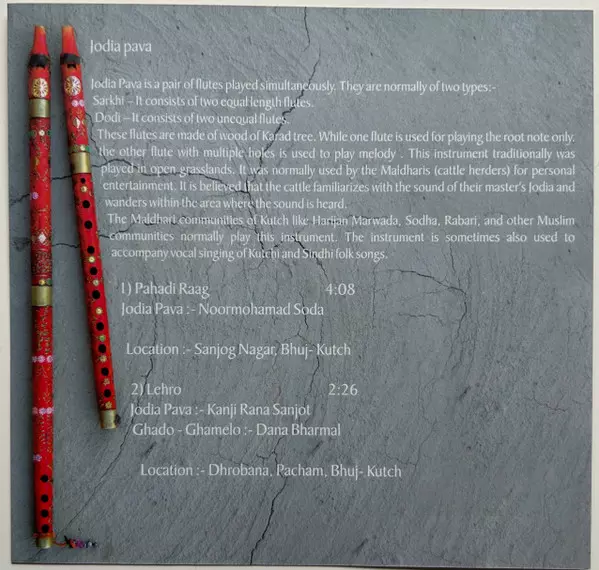 Jodia pava
Jodia Pava is a pair of flutes played simultaneously. They are normally of two types:-
Sarkhi - It consists of two equal length flutes.
Dodi – It consists of two unequal flutes.
These flutes are made of wood of Karad tree. While one flute is used for playing the root note only.
the other flute with multiple holes is used to play melody . This instrument traditionally was
played in open grasslands. It was normally used by the Maldharis (cattle herders) for personal
entertainment. It is believed that the cattle familiarizes with the sound of their master's Jodia and
wanders within the area where the sound is heard.
The Maldhari communities of Kutch like Harijan Marwada, Sodha, Rabari, and other Muslim
communities normally play this instrument. The instrument is sometimes also used to
accompany vocal singing of Kutchi and Sindhi folk songs.
1) Pahadi Raag 4:08
Jodia Pava :- Noormohamad Soda
Location :- Sanjog Nagar, Bhuj- Kutch
2) Lehro 2:26
Jodia Pava :- Kanji Rana Sanjot
Ghado - Ghamelo :- Dana Bharmal
Location :- Dhrobana, Pacham, Bhuj- Kutch